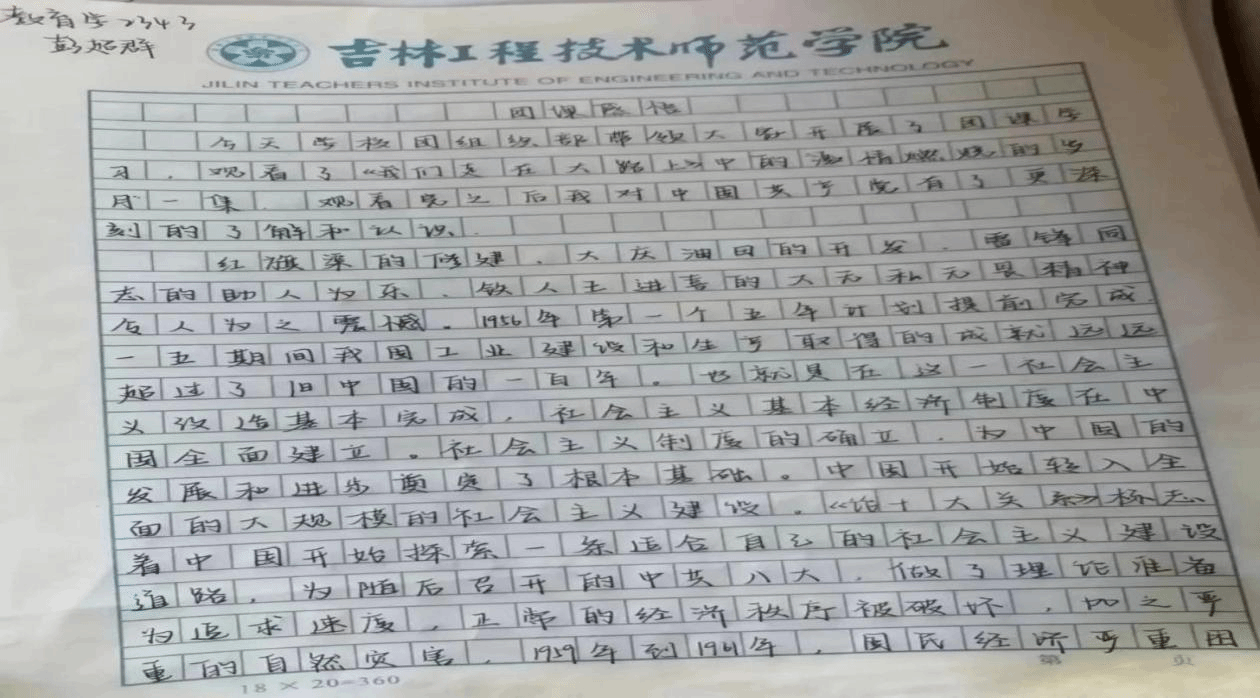 教育学2343
彭超群
吉林工程技术师范学院
JILIN TEACHERS INSTITUTE OF ENGINEERING AND TECHNOLOGY
团课感悟
今天学校团组织部带领大家开展了团课学
习，观看了《我们走在大路上》中的激情燃烧的岁
月一集．观看完之后我对中国共产党有了更深
刻的了解和认识．
红旗渠的修建．大庆油田的开发．雷锋同
志的助人为乐．铁人王进喜的大无私无畏精神
令人为之震撼。1956年第一个五年计划提前完成．
一五期间我国工业建设和生产取得的成就远远
超过了旧中国的一百年。也就是在这一社会主
义改造基本完成，社会主义基本经济制度在中
国全面建立。社会主义制度的确立．为中国的
发展和进步奠定了根本基础。中国开始转入全
面的大规模的社会主义建设。《论十大关系》标志
着中国开始探索一条适合自己的社会主义建设
道路，为随后召开的中共八大，做了理论准备
为追求速度，正常的经济秩序被破坏，加之严
重的自然灾害．1959年到1961年，国民经济严重困
第 页
18×20=360